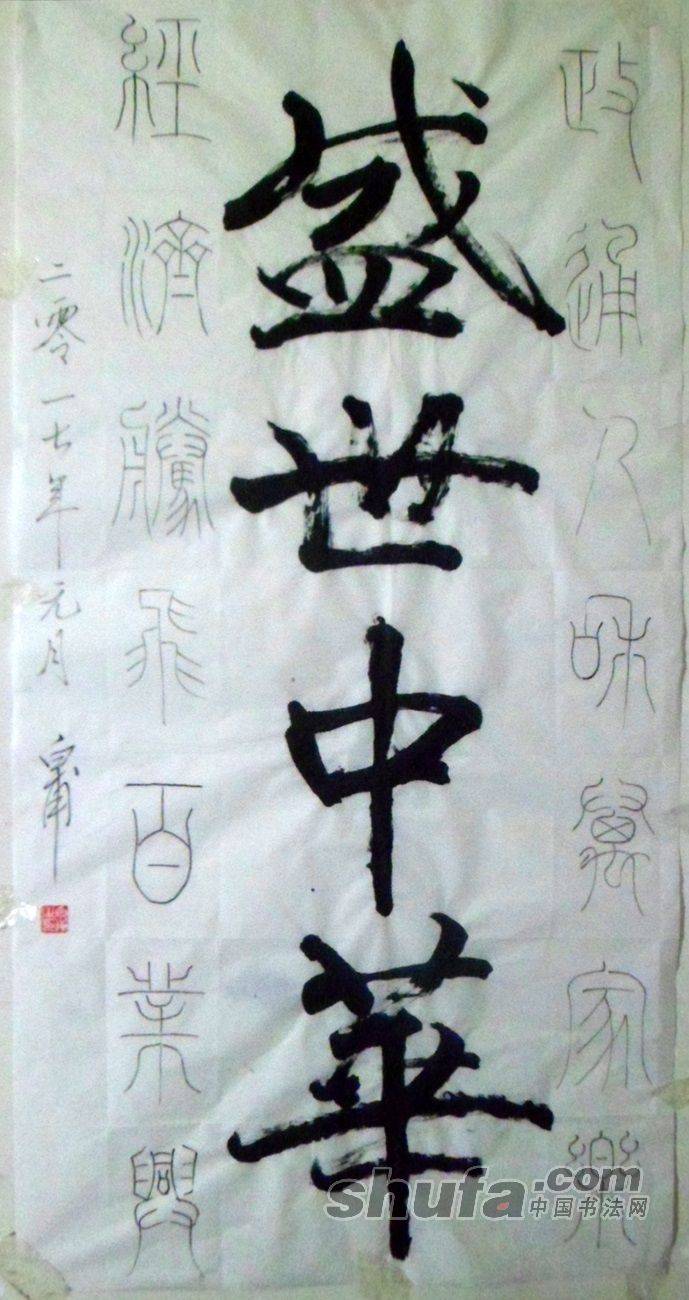 政通人和萬家樂
盛世中華
經濟騰飛百業興
二零一七年元月
shufa.com
中国书法网